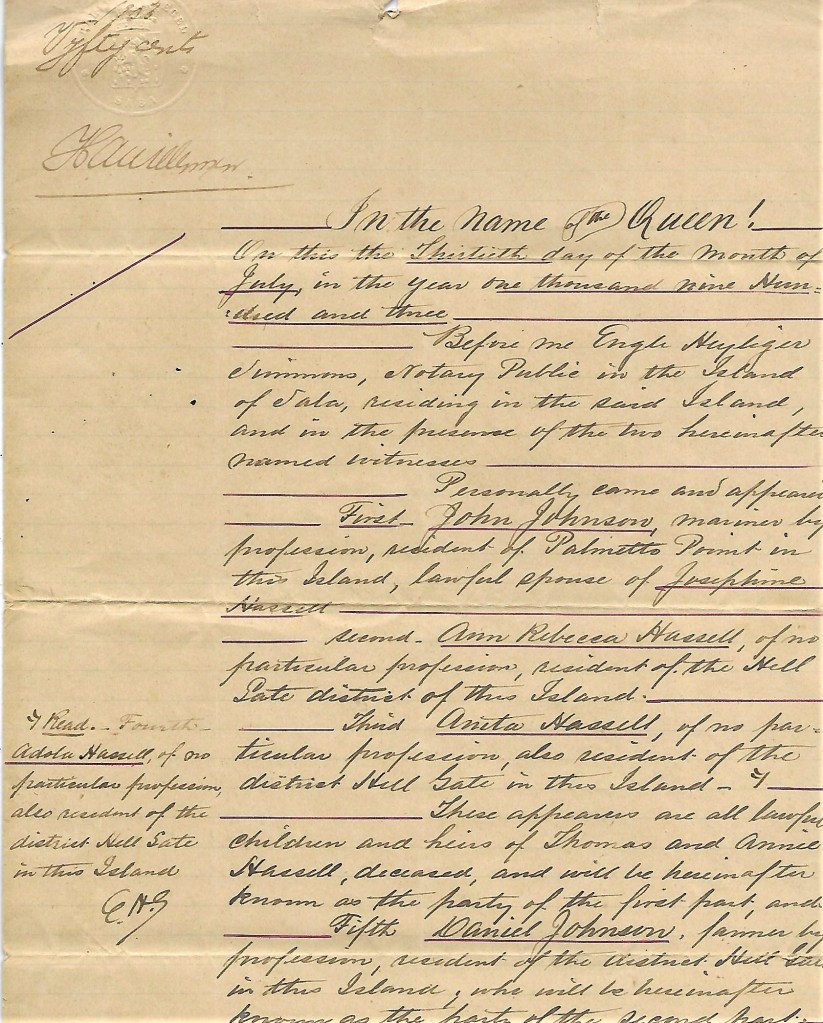 Vyfty cents
In the name of the Queen!
On this the Thirtieth day of the month of
July, in the year one thousand nine Hun-
:dred and three
Before me Engle Heyliger
Simmons, Notary Public in the Island
of Saba, residing in the said Island,
and in the presence of the two hereinafter
named witnesses
Personally came and appeared
First - John Johnson, mariner by
profession, resident of Palmetto Point in
this Island, lawful spouse of Josephine
Hassell
second - Ann Rebecca Hassell, of no
particular profession, resident of the Hell
Gate district of this Island.
Third Anita Hassell, of no par-
ticular profession, also resident of the
district Hell Gate in this Island -
Read. - Fourth -
Adola Hassell, of no
particular profession,
also resident of the
district Hell Gate
in this Island
E.H.S
These appearers are all lawful
children and heirs of Thomas and Annie
Hassell, deceased, and will be hereinafter
known as the party of the first part, and
Fifth Daniel Johnson, farmer by
profession, resident of the district Hell Gate
in this Island, who will be hereinafter
known as the party of the second part.